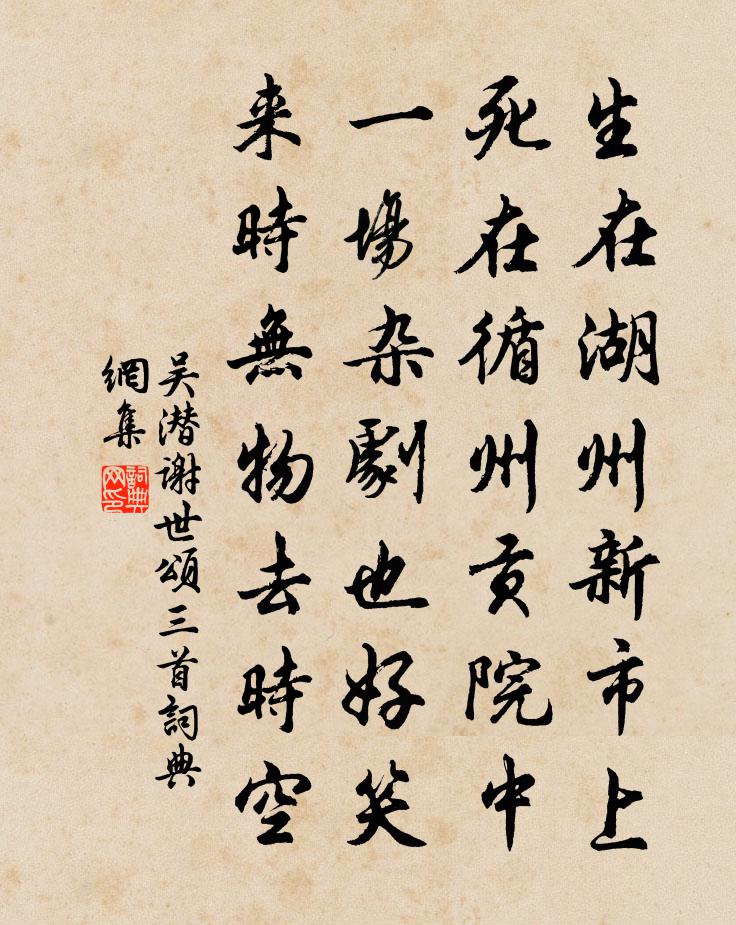 生在湖州新市上
死在循州贡院中
一場杂劇也好笑
来時無物去時空
吴潜谢世頌三首詞典
網集
詞典
网印